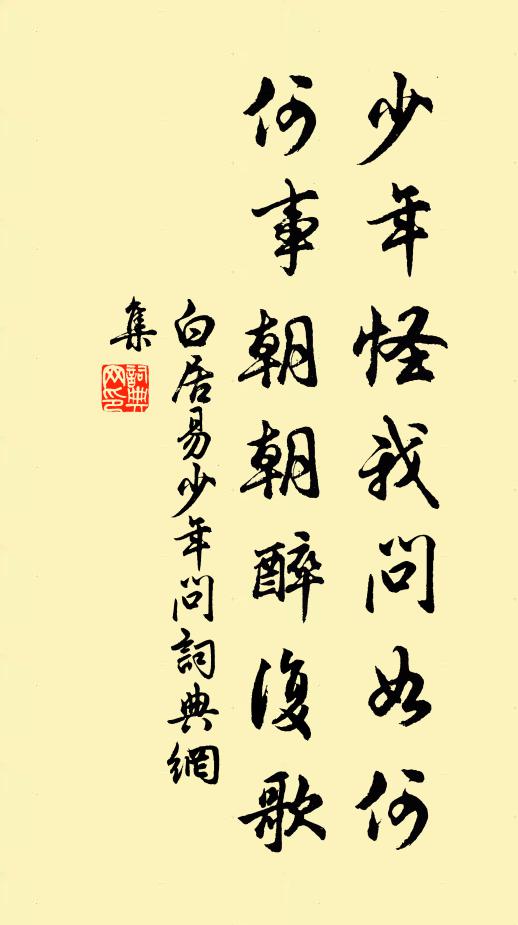 少年怪我問如何
何事朝朝醉復歌
白居易少年問詞典網
集
詞典
网印